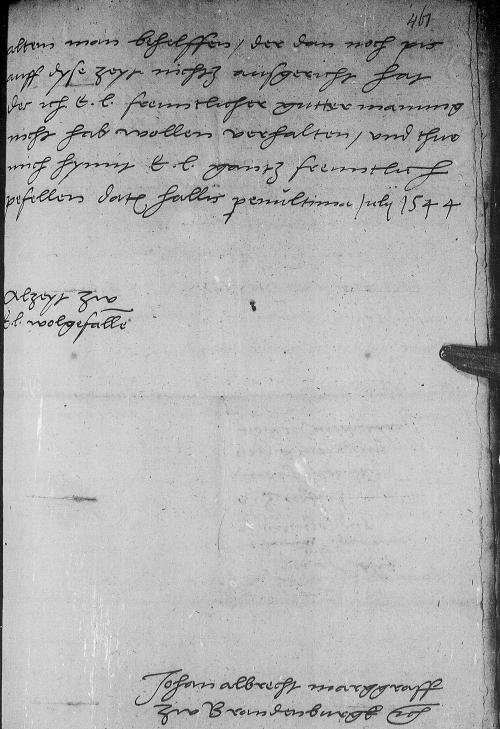 461
alten man behelffen / der dan noch pis
auff dyse zeyt nichtz ausgericht hat
des ich E. l. freuntlicher gutter manung
nicht hab wollen verhalten / und thue
mich hymit E. l. gantz freuntlich
pefellen dat hallis penultima Julij 1544
Alzeyt zw
E. l. wolgefalle
Johan albrecht marggraff
zw Brandenburgk